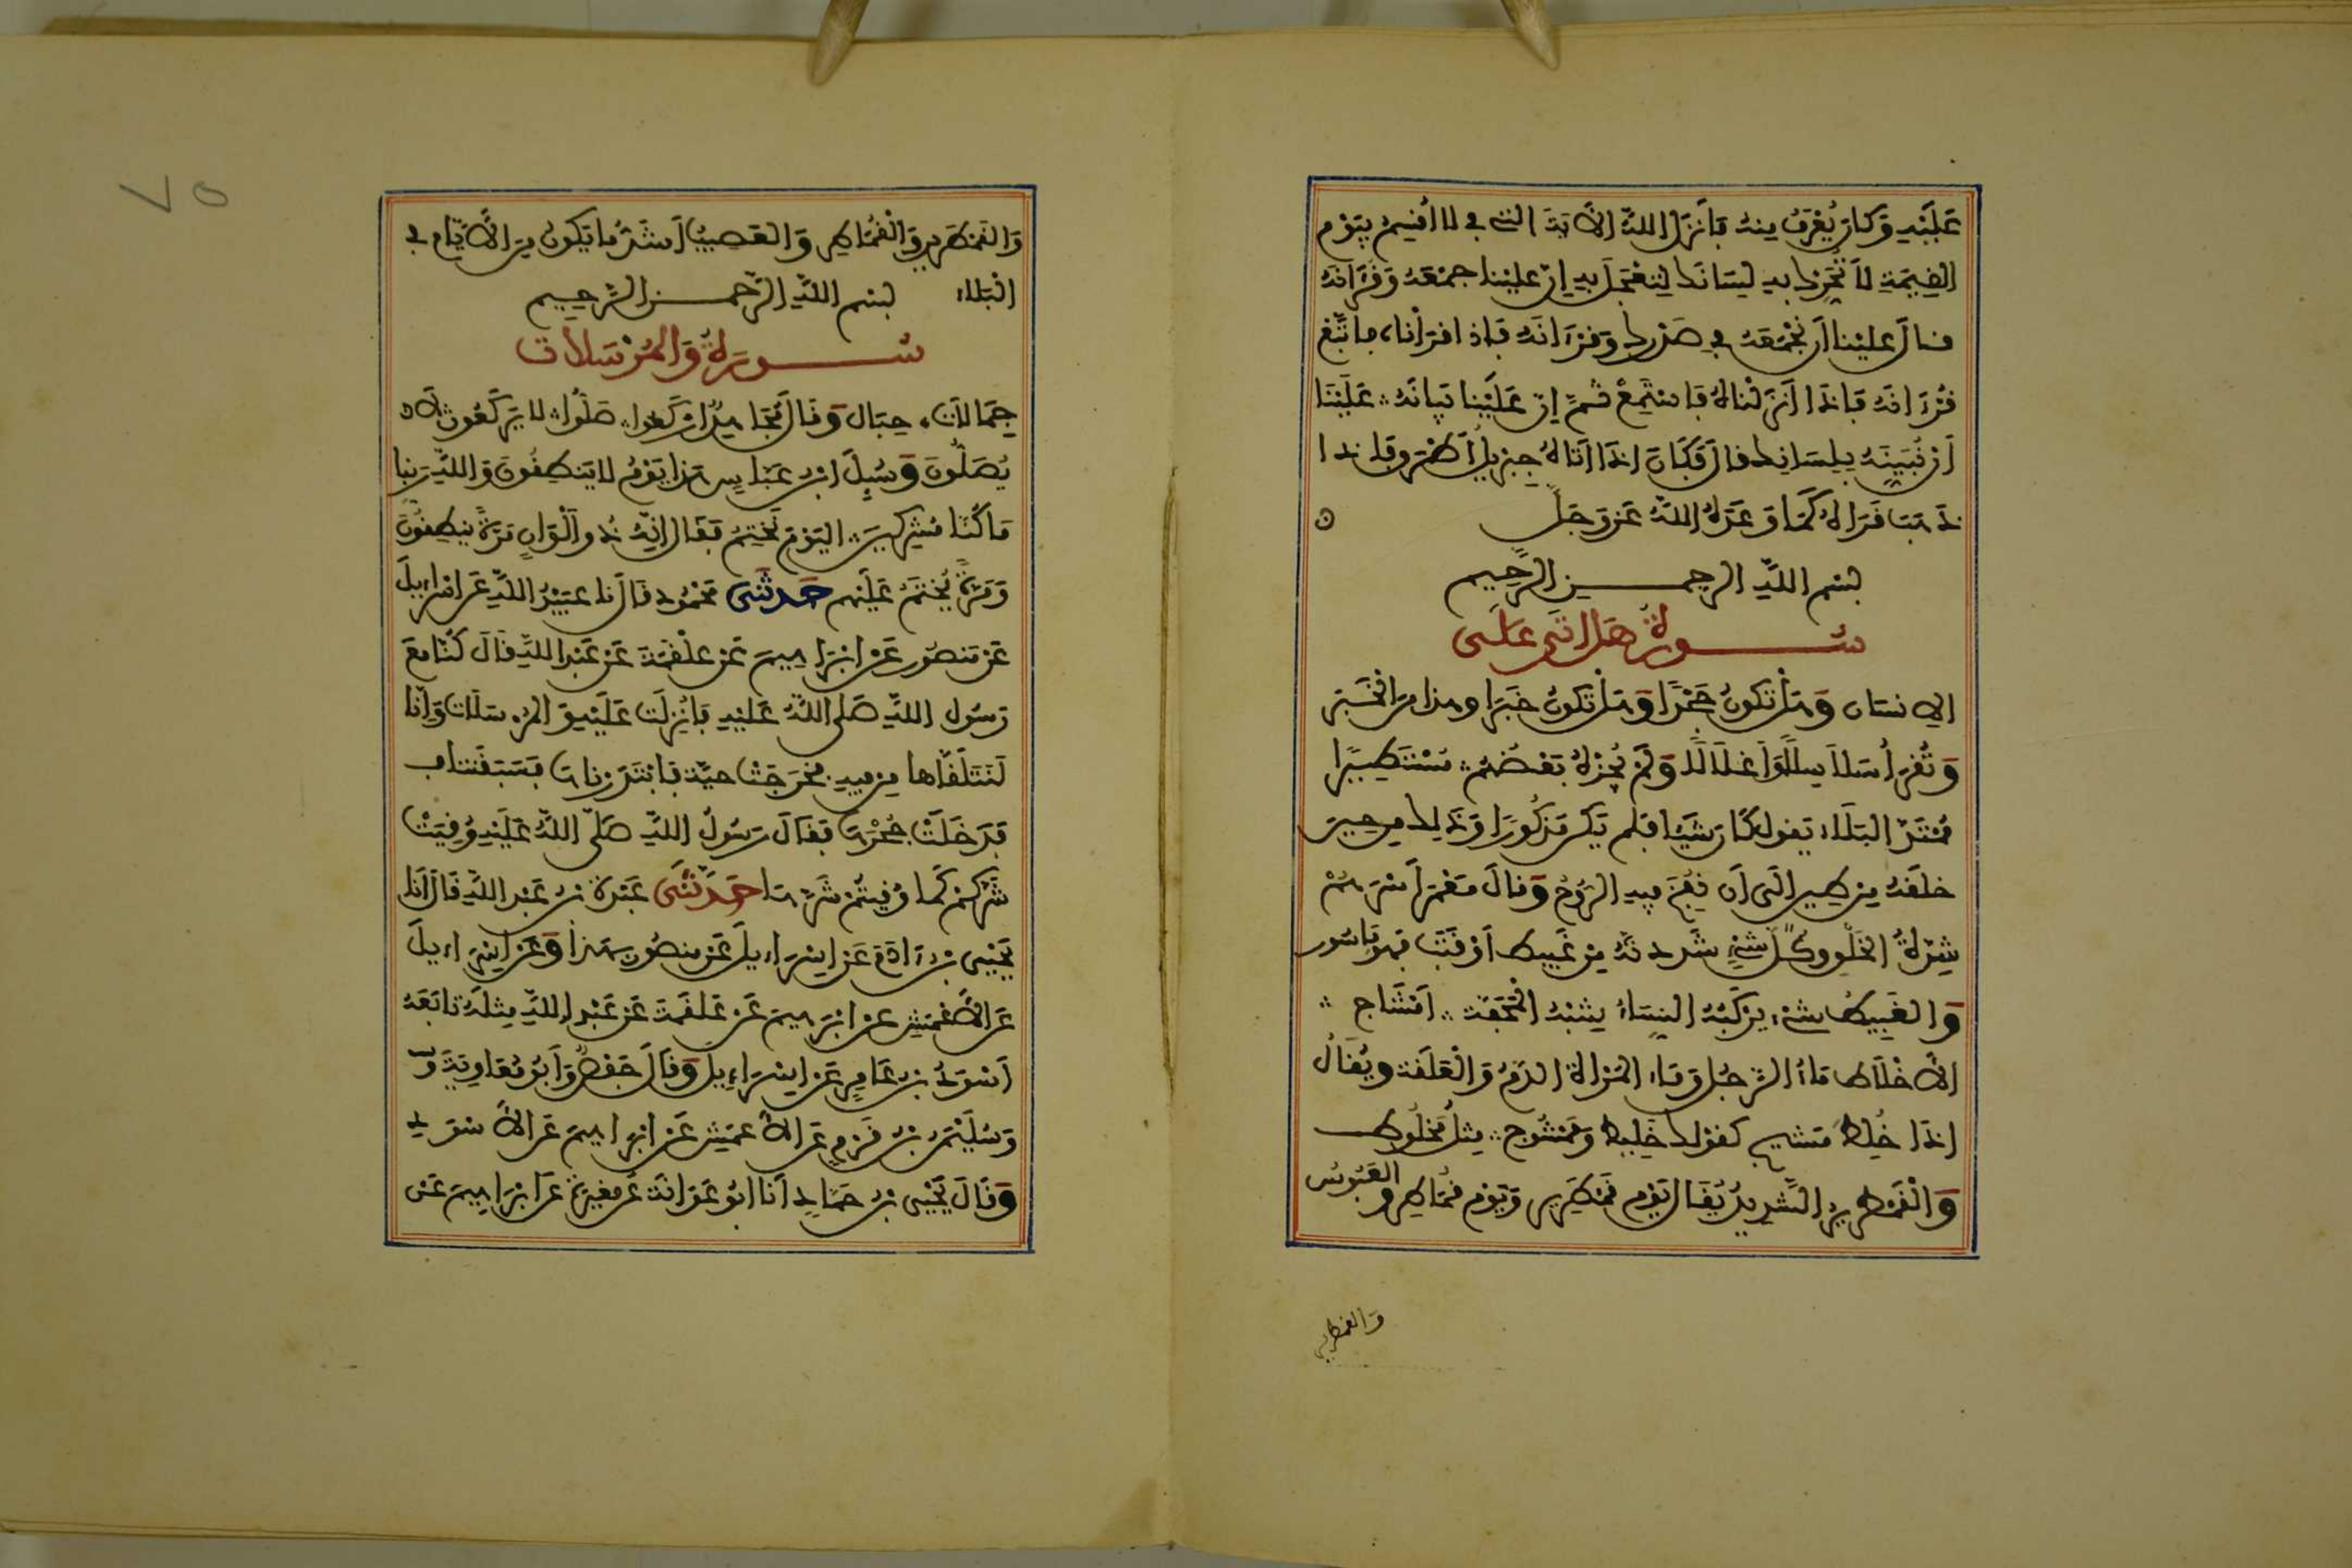 عَلَيْهِ وَكَانَ يُعْرَفُ مِنْهُ فَأَنْزَلَ اللَّهُ الْآيَةَ الَّتِي فِي لَا أُقْسِمُ بِيَوْمِ
الْقِيَمَةِ لَا تُحَرِّكْ بِهِ لِسَانَكَ لِتَعْجَلَ بِهِ إِنَّ عَلَيْنَا جَمْعَهُ وَقُرْءَانَهُ
قَالَ عَلَيْنَا أَنْ نَجْمَعَهُ فِي صَدْرِكَ وَقُرْءَانَهُ فَإِذَا قَرَأْنَاهُ فَاتَّبِعْ
قُرْءَانَهُ فَإِذَا أَنْزَلْنَاهُ فَاسْتَمِعْ ثُمَّ إِنَّ عَلَيْنَا بَيَانَهُ عَلَيْنَا
أَنْ نُبَيِّنَهُ بِلِسَانِكَ قَالَ فَكَانَ إِذَا أَتَاهُ جِبْرِيلُ أَطْرَقَ فَإِذَا
ذَهَبَ قَرَأَهُ كَمَا وَعَدَهُ اللَّهُ عَزَّ وَجَلَّ
بسم الله الرحمن الرحيم
سُورَةُ هَلْ أَتَى عَلَى
الإنسان وَهَلْ تَكُونُ جَحْدًا وَهَلْ تَكُونُ خَبَرًا وهذا مِنَ الْخَبَرِ
وَيُقْرَأُ سَلَاسِلًا وَأَغْلَالًا وَلَمْ يُجْرِهِ بَعْضُهُمْ مُسْتَطِيرًا
مُمْتَدُّ الْبَلَاءِ يَقُولُ كَانَ شَيْئًا فَلَمْ يَكُنْ مَذْكُورًا وَذَلِكَ مِنْ حِينِ
خَلَقَهُ مِنْ طِينٍ إِلَى أَنْ نُفِخَ فِيهِ الرُّوحُ وَقَالَ مَعْمَرٌ أَسْرَهُمْ
شِدَّةُ الْخَلْقِ وَكُلُّ شَيْءٍ شَدَدْتَهُ مِنْ غَبِيطٍ أَوْ قَتَبٍ فَهُوَ مَاسُور
وَالْغَبِيطُ شَيْءٌ يَرْكَبُهُ النِّسَاءُ يُشْبِهُ الْمِحَفَّةَ أَمْشَاجٍ
الْأَخْلَاطُ مَاءُ الرَّجُلِ وَمَاءُ الْمَرْأَةِ الدَّمُ وَالْعَلَقَةُ وَيُقَالُ
إِذَا خُلِطَ مَشِيجٌ كَقَوْلِكَ خَلِيطٌ وَمَمْشُوجٌ مِثْلُ مَخْلُوطٍ
وَالْقَمْطَرِيرُ الشَّدِيدُ يُقَالُ يَوْمٌ قَمْطَرِيرٌ وَيَوْمٌ قُمَاطِرٌ وَالْعَبُوسُ
والقمطرير
٧٥
وَالْقَمْطَرِيرُ وَالْقُمَاطِرُ وَالْعَصِيبُ أَشَدُّ مَا يَكُونُ مِنَ الْأَيَّامِ فِي
الْبَلَاءِ بسم الله الرحمن الرحيم
سُورَةُ وَالْمُرْسَلَات
جِمَالَات حِبَال وَقَالَ مُجَاهِدٌ ارْكَعُوا صَلُّوا لَا يَرْكَعُونَ لَا
يُصَلُّونَ وَسُئِلَ ابْنُ عَبَّاسٍ هَذَا يَوْمُ لَا يَنْطِقُونَ وَاللَّهِ رَبِّنَا
مَا كُنَّا مُشْرِكِينَ الْيَوْمَ نَخْتِمُ فَقَالَ إِنَّهُ ذُو أَلْوَانٍ مَرَّةً يَنْطِقُونَ
وَمَرَّةً يُخْتَمُ عَلَيْهِمْ حَدَّثَنِي مَحْمُودٌ قَالَ نَا عُبَيْدُ اللَّهِ عَنْ إِسْرَائِيلَ
عَنْ مَنْصُورٍ عَنْ إِبْرَاهِيمَ عَنْ عَلْقَمَةَ عَنْ عَبْدِ اللَّهِ قَالَ كُنَّا مَعَ
رَسُولِ اللَّهِ صَلَّى اللَّهُ عَلَيْهِ فَأُنْزِلَتْ عَلَيْهِ وَالْمُرْسَلَات وَإِنَّا
لَنَتَلَقَّاهَا مِنْ فِيهِ فَخَرَجَتْ حَيَّةٌ فَابْتَدَرْنَاهَا فَسَبَقَتْنَا
فَدَخَلَتْ جُحْرَهَا فَقَالَ رَسُولُ اللَّهِ صَلَّى اللَّهُ عَلَيْهِ وُقِيَتْ
شَرَّكُمْ كَمَا وُقِيتُمْ شَرَّهَا حَدَّثَنِي عَبْدَةُ بْنُ عَبْدِ اللَّهِ قَالَ أَنَا
يَحْيَى بْنُ ءَادَمَ عَنْ إِسْرَاءِيلَ عَنْ مَنْصُورٍ بِهَذَا وَعَنْ إِسْرَاءِيلَ
عَنِ الْأَعْمَشِ عَنْ إِبْرَهِيمَ عَنْ عَلْقَمَةَ عَنْ عَبْدِ اللَّهِ مِثْلَهُ تَابَعَهُ
أَسْوَدُ بْنُ عَامِرٍ عَنْ إِسْرَاءِيلَ وَقَالَ حَفْصٌ وَأَبُو مُعَاوِيَةَ
وَسُلَيْمَنُ بْنُ قَرْمٍ عَنِ الْأَعْمَشِ عَنْ إِبْرَاهِيمَ عَنِ الْأَسْوَدِ
وَقَالَ يَحْيَى بْنُ حَمَّادٍ أَنَا أَبُو عَوَانَةَ عَنْ مُغِيرَةَ عَنْ إِبْرَاهِيمَ عَنْ